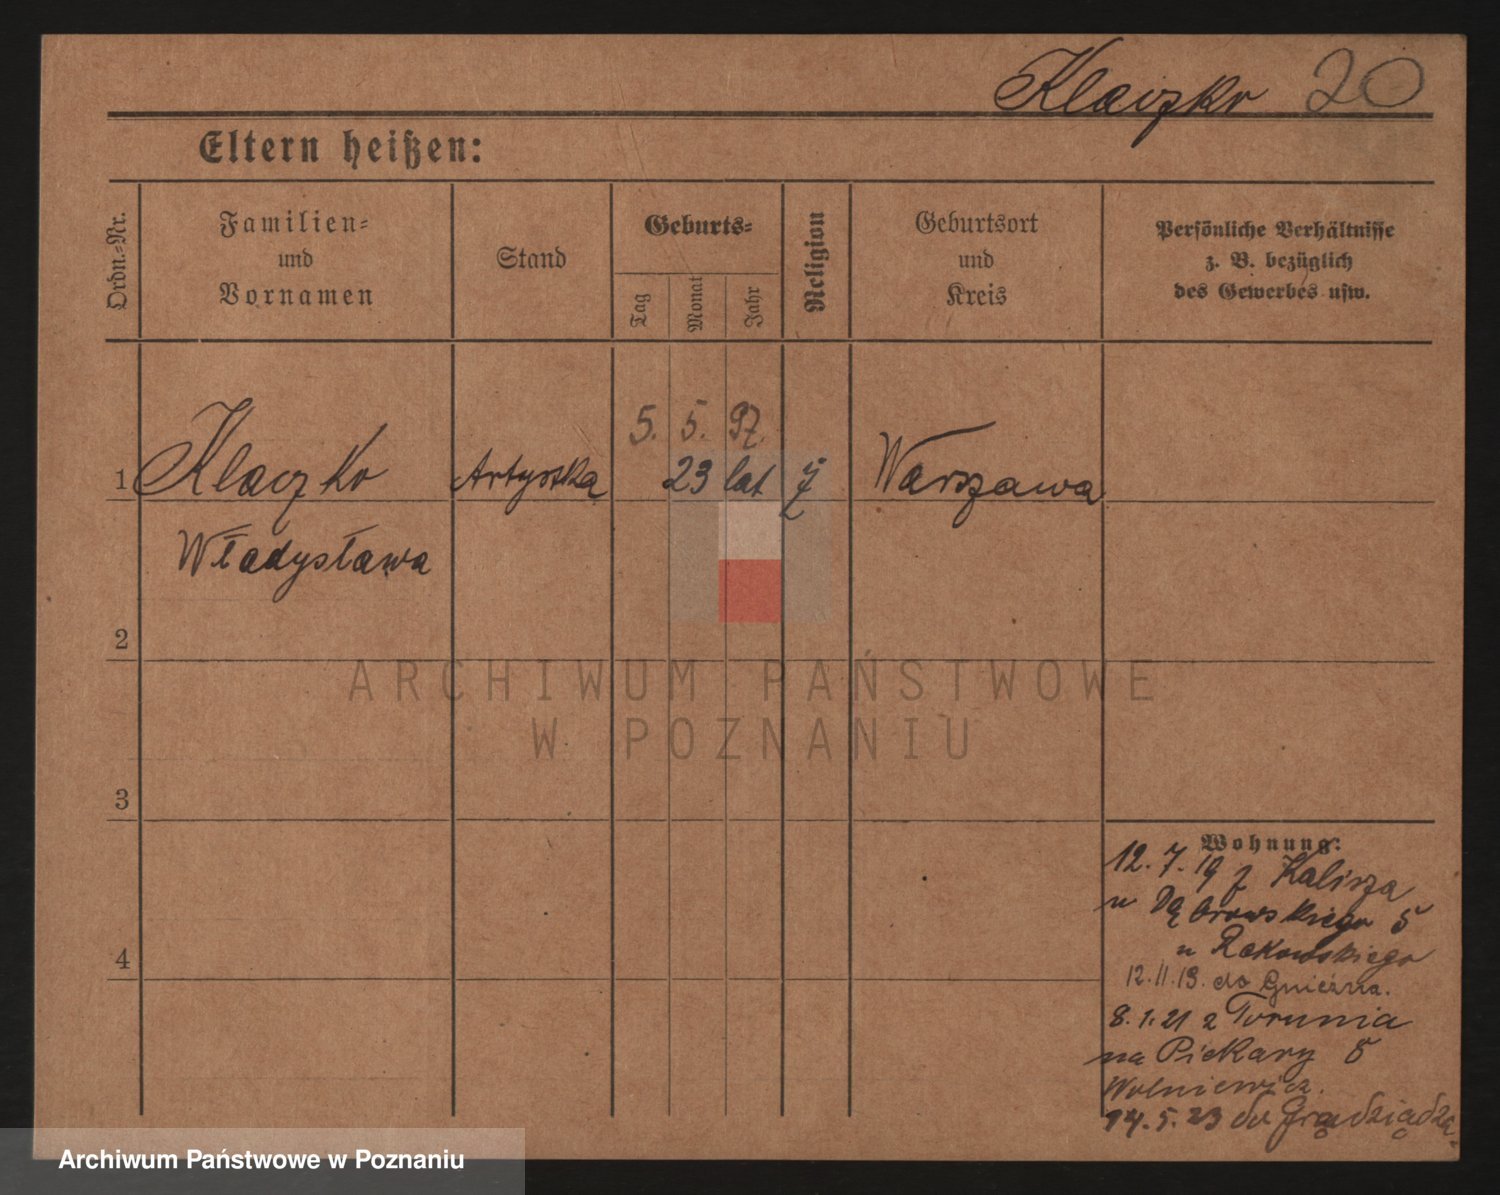 Klaczko 20
Eltern heißen:
Ordn.-Nr.
Familien-
und
Vornamen
Stand
Geburts-
Tag
Monat
Jahr
Religion
Geburtsort
und
Kreis
Persönliche Verhältnisse
z. B. bezüglich
des Gewerbes usw.
5. 5. 97.
1 Klaczko Artystka 23 lat Warszawa
Władysława
2
3
4
Wohnung:
12.7.19 z Kalisza
u Dąbrowskiego 5
u Rakowskiego
12.11.19. do Gniezna.
8.1.21 z Torunia
na Piekary 5
Wolniewicz.
14.5.23 do Grudziądza
ARCHIWUM PAŃSTWOWE
W POZNANIU
Archiwum Państwowe w Poznaniu